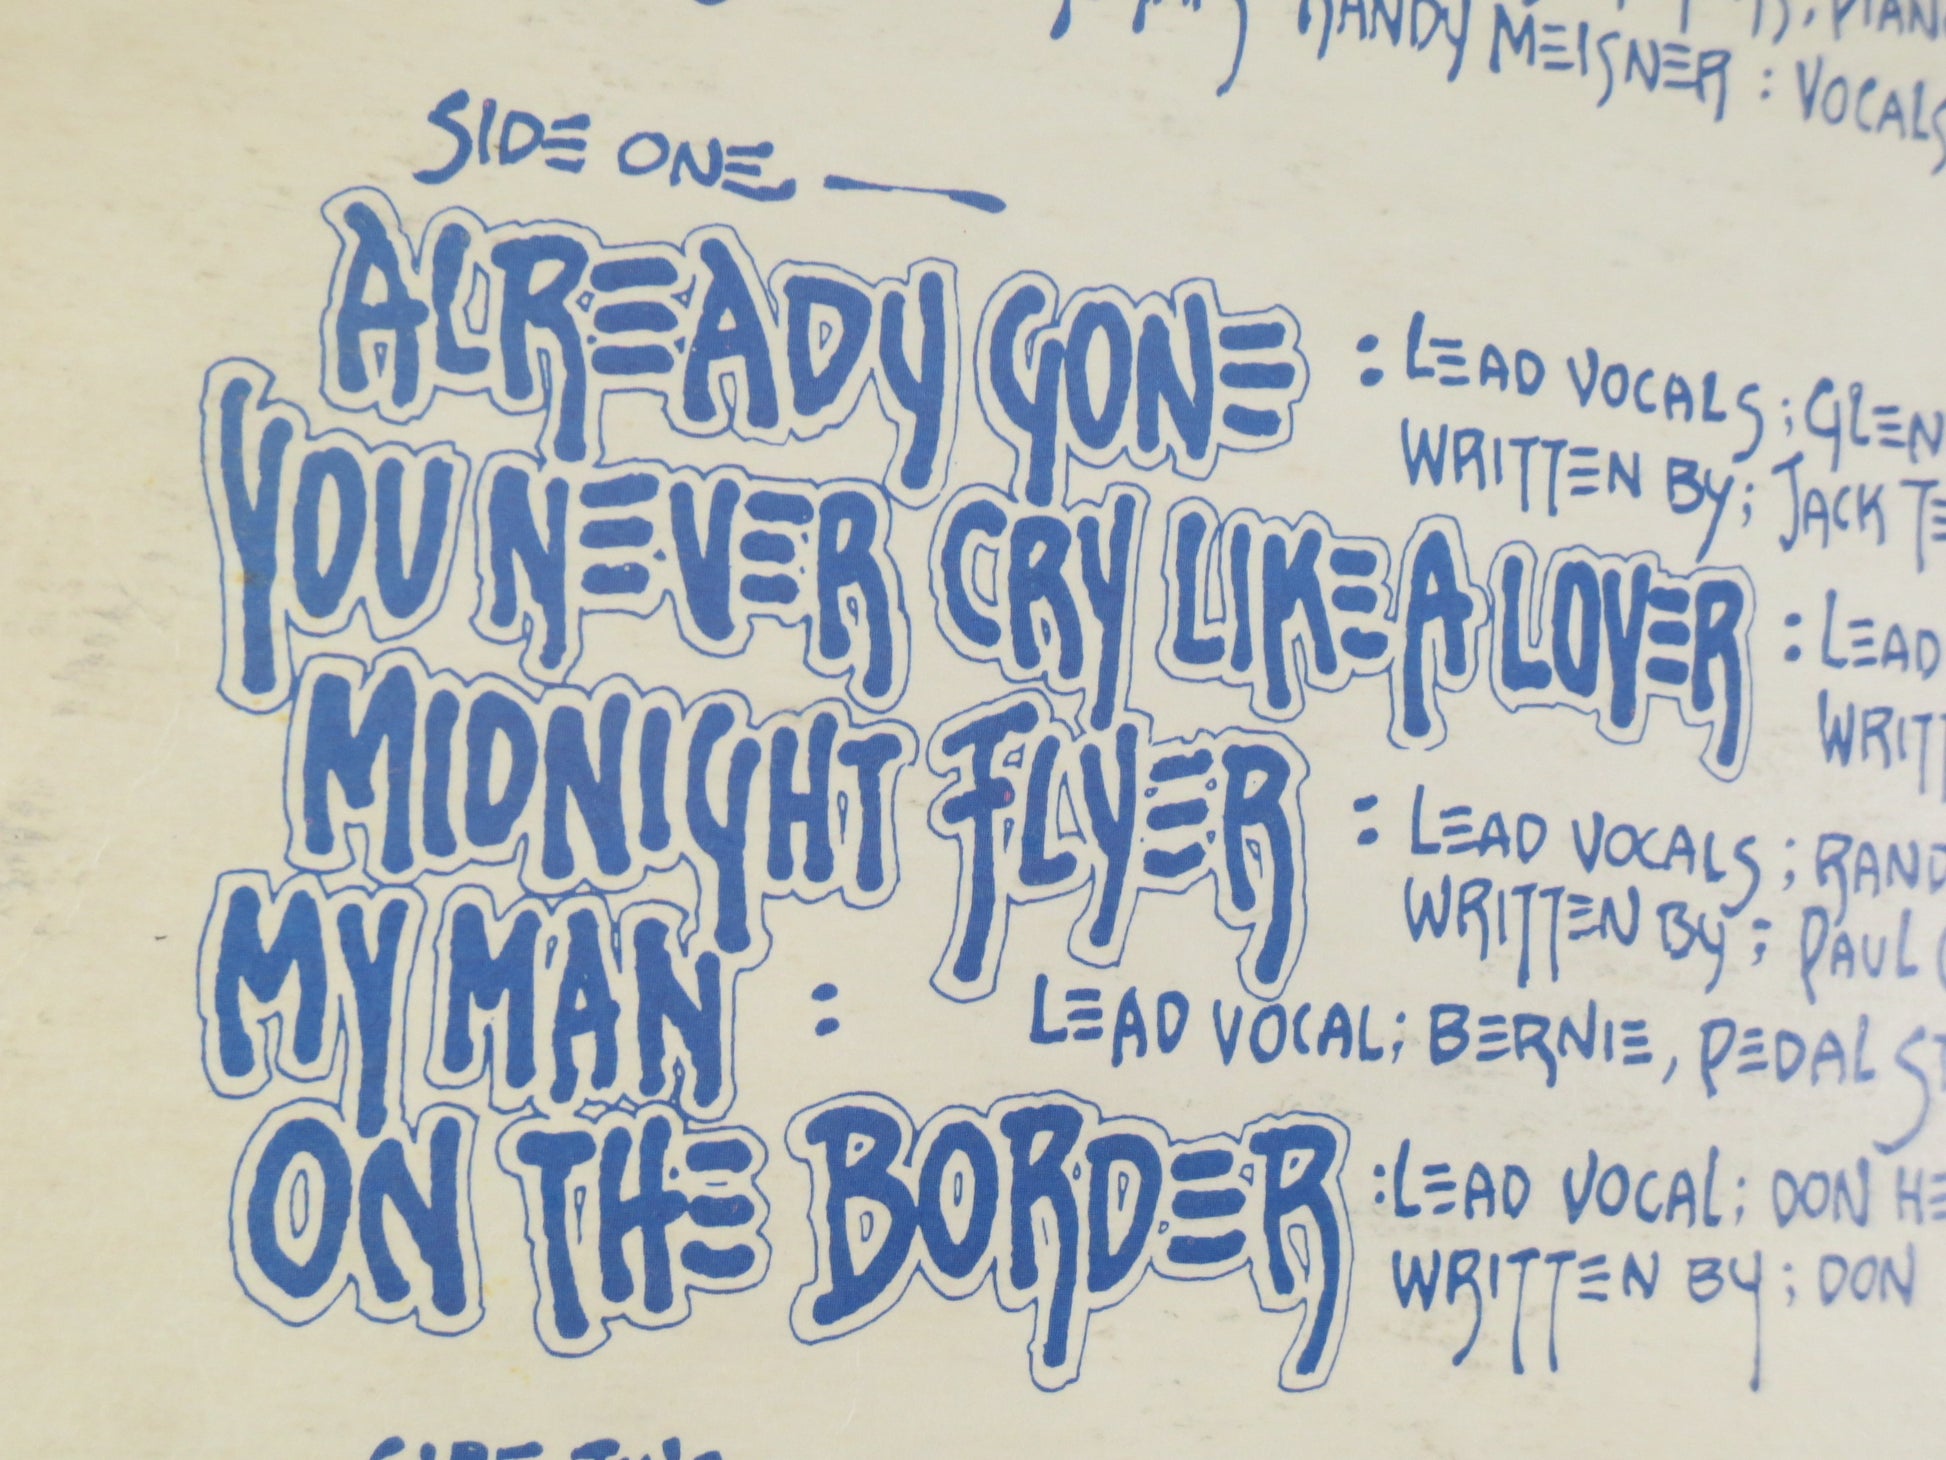 RANDY MEISNER : VOCALS
SIDE ONE
ALREADY GONE : LEAD VOCALS ; GLEN
WRITTEN BY ; JACK TE
YOU NEVER CRY LIKE A LOVER : LEAD
WRITT
MIDNIGHT FLYER : LEAD VOCALS ; RAND
WRITTEN BY ; PAUL
MY MAN : LEAD VOCAL ; BERNIE, PEDAL ST
ON THE BORDER : LEAD VOCAL ; DON HE
WRITTEN BY ; DON
SIDE TWO